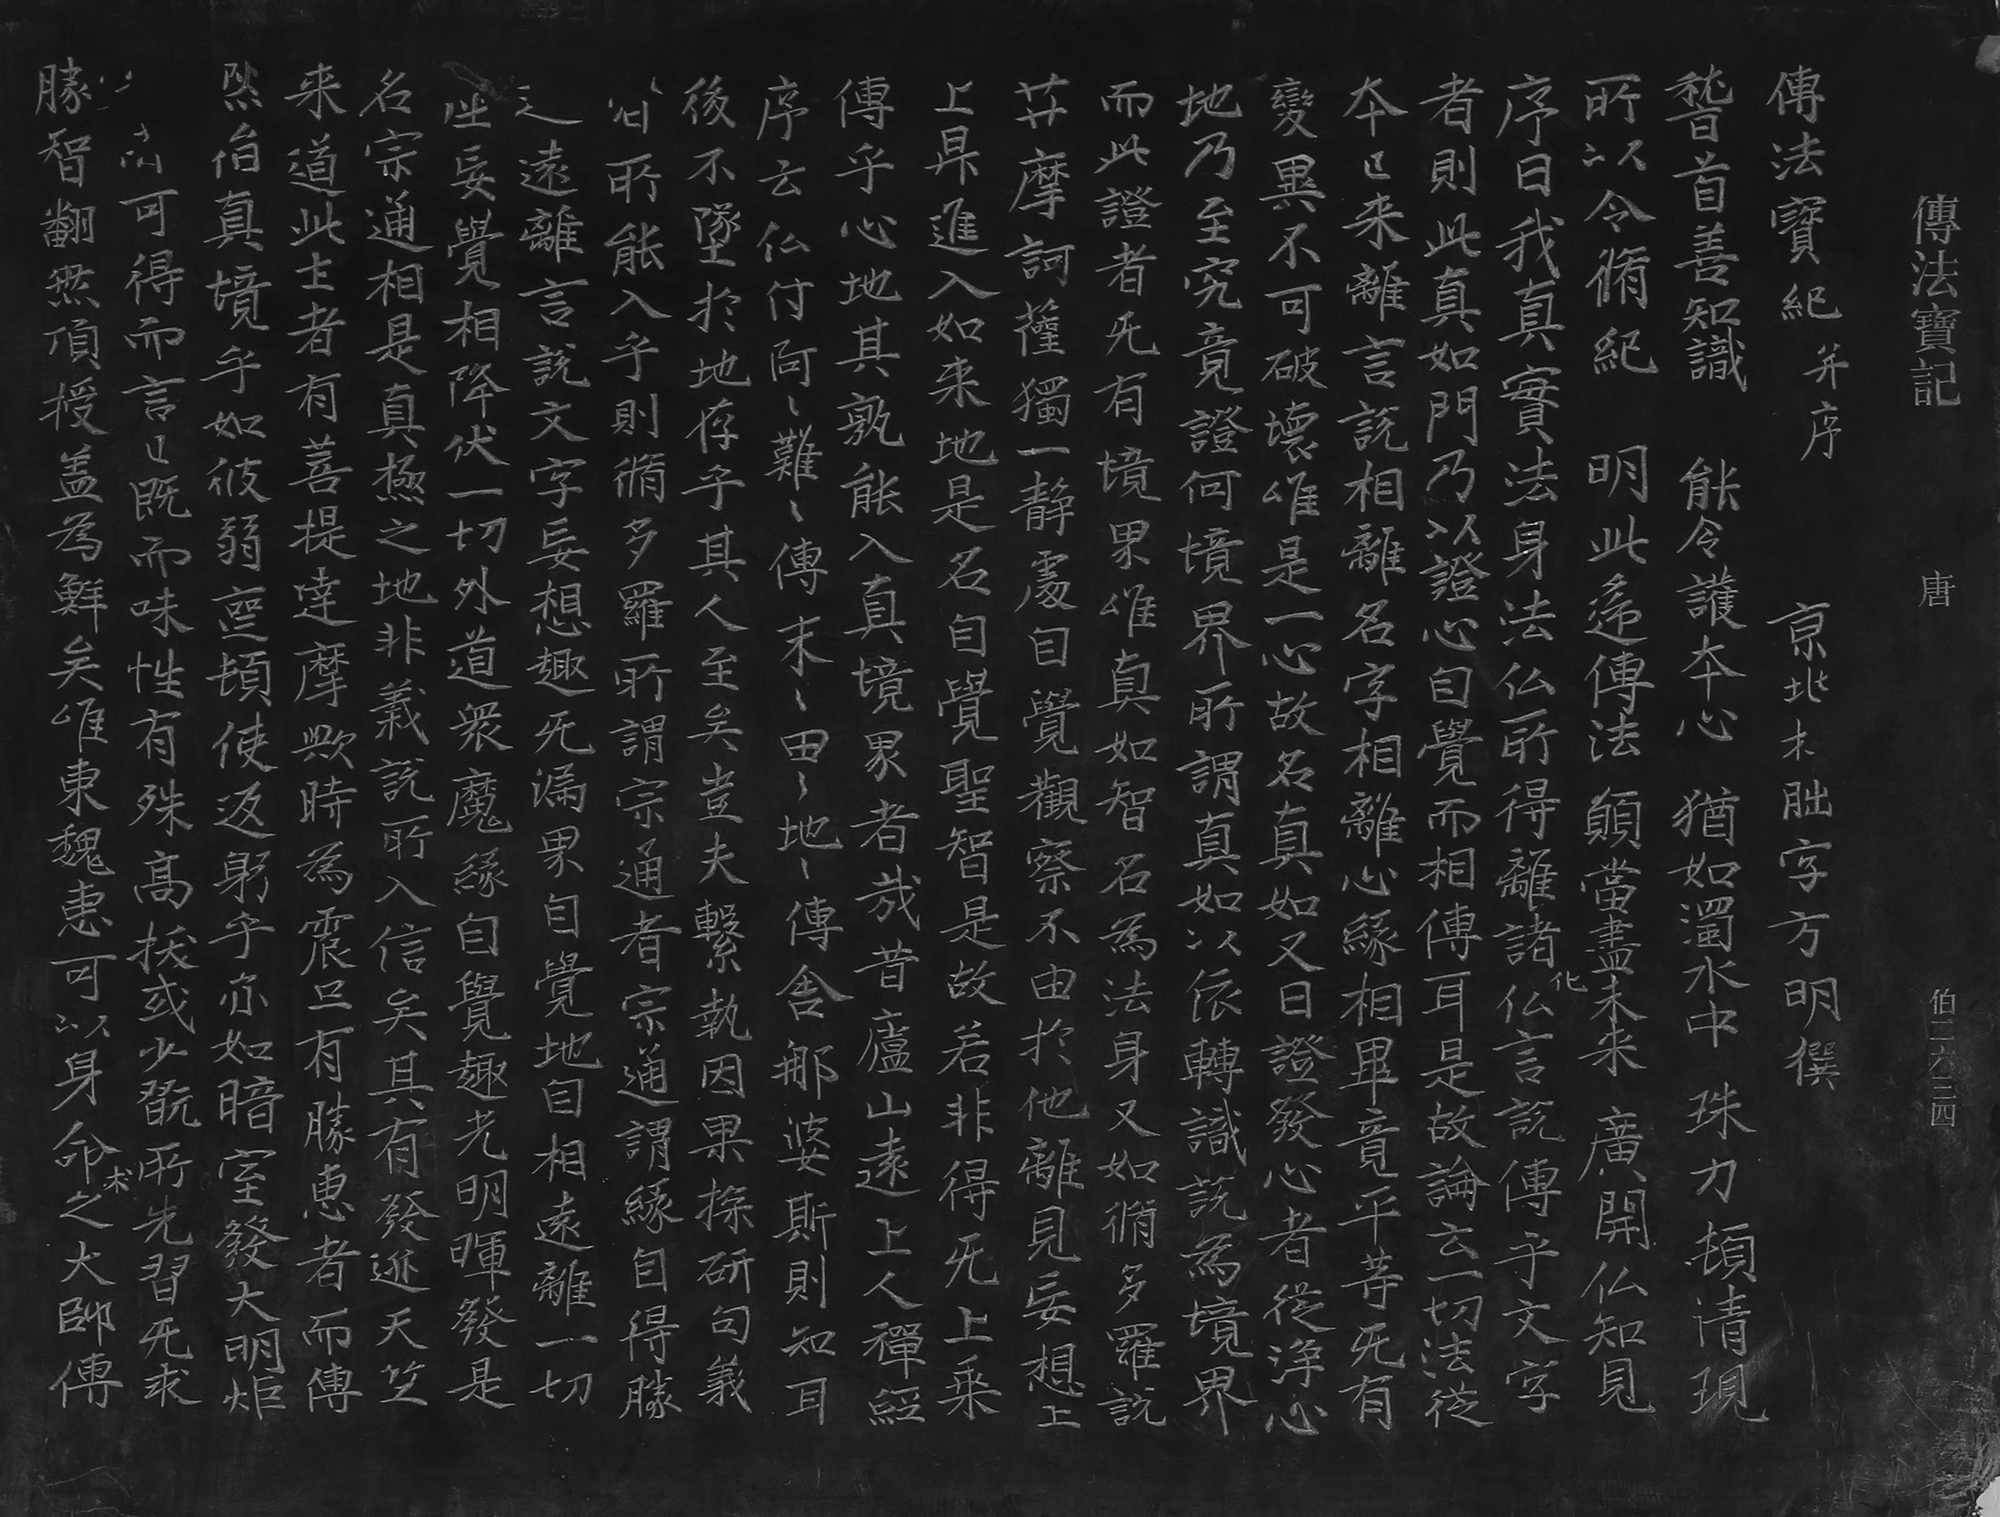 傳法寶記 唐 伯二六三四
傳法寶紀 并序 京北杜朏字方明撰
嵆首善知識 能令護夲心 猶如濁水中 珠力頓清現
所以令脩紀 明此遞傳法 願當盡未来 廣開仏知見
序曰我真實法身法仏所得離諸化仏言説傳乎文字
者則此真如門乃以證心自覺而相傳耳是故論云一切法從
夲已来離言説相離名字相離心緣相畢竟平等无有
變異不可破壞唯是一心故名真如又曰證發心者從淨心
地乃至究竟證何境界所謂真如以依轉識説為境界
而此證者无有境界唯真如智名為法身又如脩多羅説
廾摩訶薩獨一静處自覺觀察不由於他離見妄想上
上昇進入如来地是名自覺聖智是故若非得无上乘
傳乎心地其孰能入真境界者哉昔廬山遠上人禪經
序云仏付阿〻難〻傳末〻田〻地〻傳舍那婆斯則知耳
後不墜於地存乎其人至矣豈夫繫執因果探研句義
所能入乎則脩多羅所謂宗通者宗通謂緣自得勝
遠離言説文字妄想趣无漏界自覺地自相遠離一切
妄覺相降伏一切外道衆魔緣自覺趣光明暉發是
名宗通相是真極之地非義説所入信矣其有發迹天竺
来道此土者有善提達摩歟時為震旦有勝惠者而傳
然佁真境乎如彼弱喪頓使返躬乎亦如暗室發大明炬
可得而言已既而味性有殊高拔或少翫所先習无求
勝智翻然頂授盖為鮮矣唯東魏惠可以身命求之大師傳